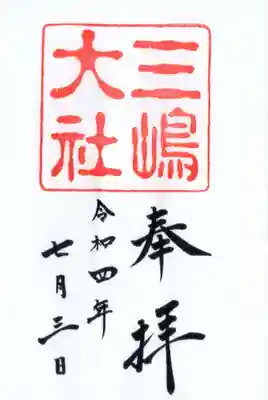 三嶋
大社
奉拝
令和四年
七月三日